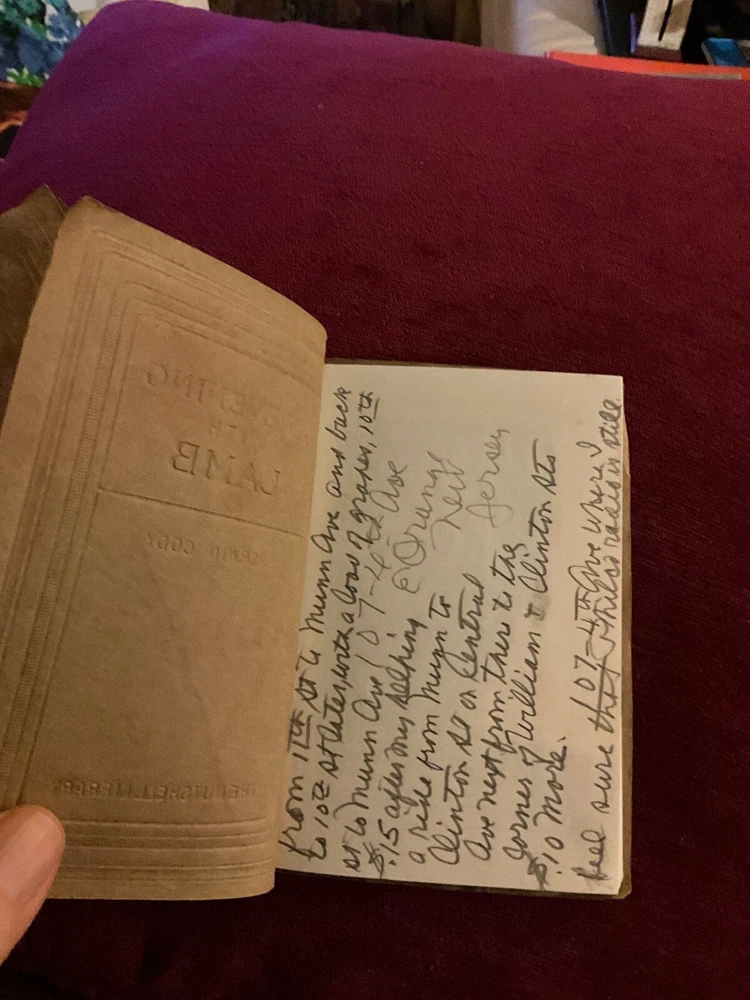 EVENING
LAMB
CODY
from 11th St to Munn Ave and back
to 10th St later with a load of grapes, 10th
St to Munn Ave 107-4th Ave
$.15 after my selling E Orange
a ride from Munn to New
Clinton St on Central Jersey
Ave next from there to the
corner of William & Clinton Sts
$.10 more.
107-4th Ave where I
feel sure that Philco radio is still.